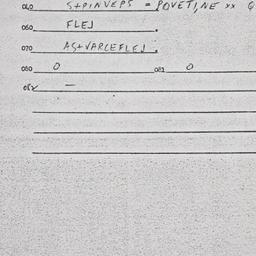 040 S+PINVEPS = POVETI,NE xx
050 FLEJ.
070 AS+VARCEFLEJ.
080 0 081 0
082 —